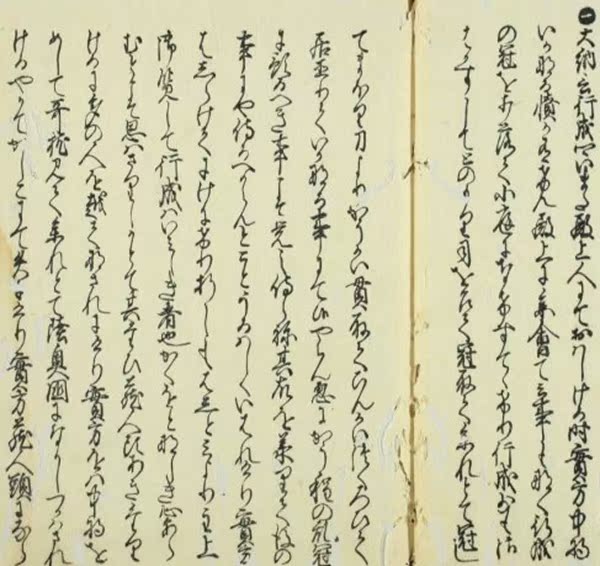 一大納言行成卿いまた殿上人にておはしける時實方中将
いかなる憤かありけん殿上に参會て云事も
の冠を打落て小庭になけすててけり行成
して とのもり司をめして冠取てまいれとて冠
てまもり刀よりかうかい貫取てひんかいつくろひて
居直りていかなる事にて候やらん忽にかう程の乱冠
に預るへき事こそ覚え侍らね其故を承りて後の
事にや侍へからんとことうるはしくいはれけり實方
はしらけてにけにけり折しもこしとみより主上
御覧して行成はいみしき者也かくをとなしき心あら
むとこそ思はさりしかとて其たひ蔵人頭あきける
けるにおほくの人を越てなされにけり實方をは中将を
めして哥枕見て参れとて陸奥国になしてつかはされ
けるやかてかしこにてうせにけり實方蔵人頭になら